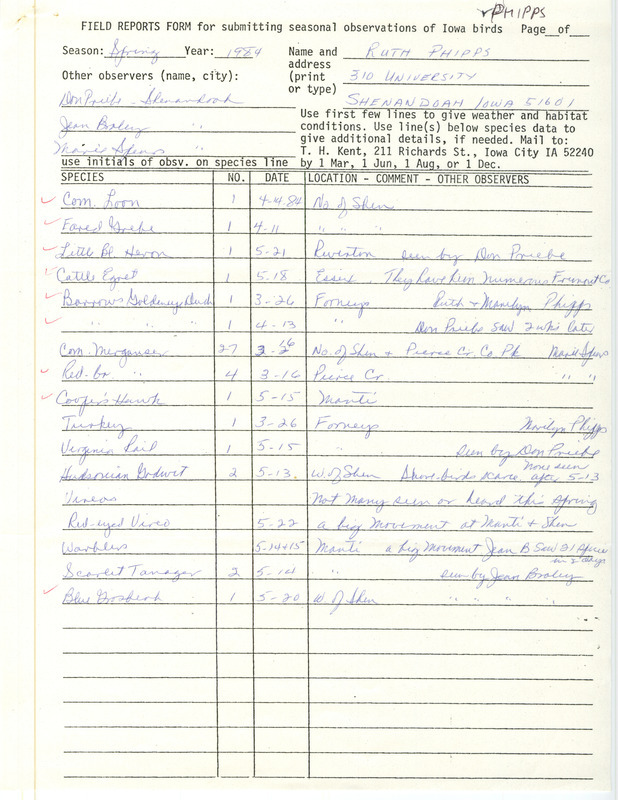 PHIPPS
FIELD REPORTS FORM for submitting seasonal observations of Iowa birds Page of
Season: Spring Year: 1984 Name and RUTH PHIPPS
address
Other observers (name, city): (print 310 UNIVERSITY
or type)
Don Priebe - Shenandoah SHENANDOAH IOWA 51601
Jean Braley " Use first few lines to give weather and habitat
conditions. Use line(s) below species data to
Marie Spears " give additional details, if needed. Mail to:
T. H. Kent, 211 Richards St., Iowa City IA 52240
use initials of obsv. on species line by 1 Mar, 1 Jun, 1 Aug, or 1 Dec.
SPECIES NO. DATE LOCATION - COMMENT - OTHER OBSERVERS
Com. Loon 1 4-14-84 No. of Shen
Eared Grebe 1 4-11 " " "
Little Bl Heron 1 5-21 Riverton seen by Don Priebe
Cattle Egret 1 5-18 Essex They have been numerous Fremont Co
Barrows Goldeneye Duck 1 3-26 Forneys Ruth & Marilyn Phipps
" " " 1 4-13 " Don Priebe saw 2 wks later
Com. Merganser 27 3-26 No. of Shen & Pierce Cr. Co Pk Marie Spears
Red-br " 4 3-16 Pierce Cr. " "
Cooper's Hawk 1 5-15 Manti
Turkey 1 3-26 Forneys Marilyn Phipps
Virginia Rail 1 5-15 " seen by Don Priebe
Hudsonian Godwit 2 5-13 W. of Shen Shore-birds scarce, none seen after 5-13
Vireos Not many seen or heard this spring
Red-eyed Vireo 5-22 a big movement at Manti & Shen
Warblers 5-14+15 Manti a big movement Jean B Saw 21 species in 2 days
Scarlet Tanager 2 5-14 " seen by Jean Braley
Blue Grosbeak 1 5-20 W. of Shen " " "